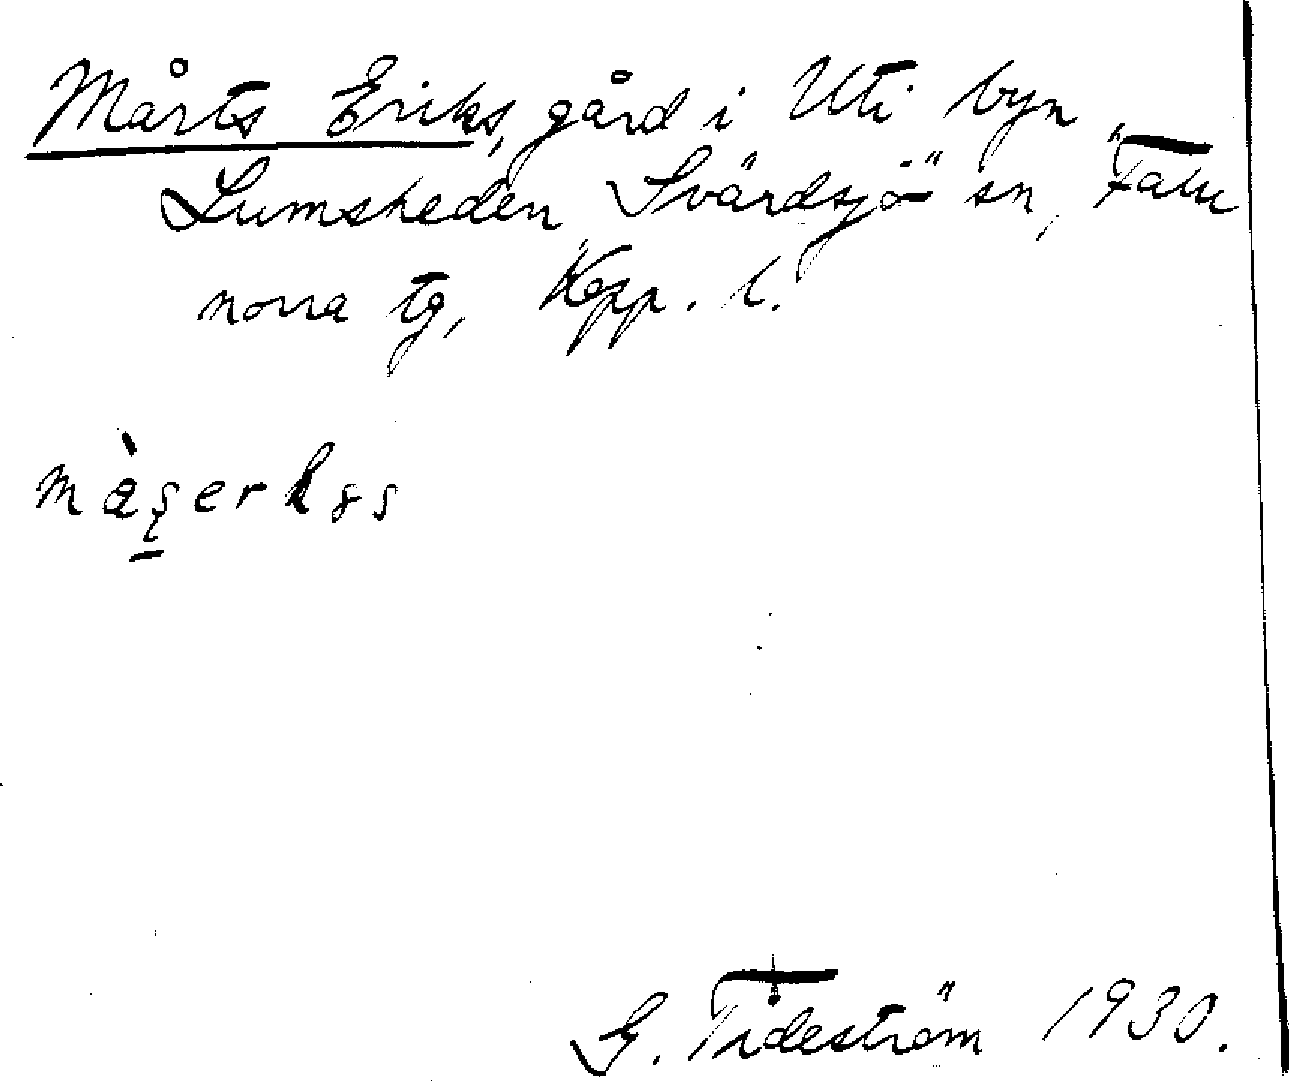 Mårts Eriks, gård i Uti byn
Lumsheden, Svärdsjö sn, Falu
norra tg, Kopp. l.
G. Tideström 1930.